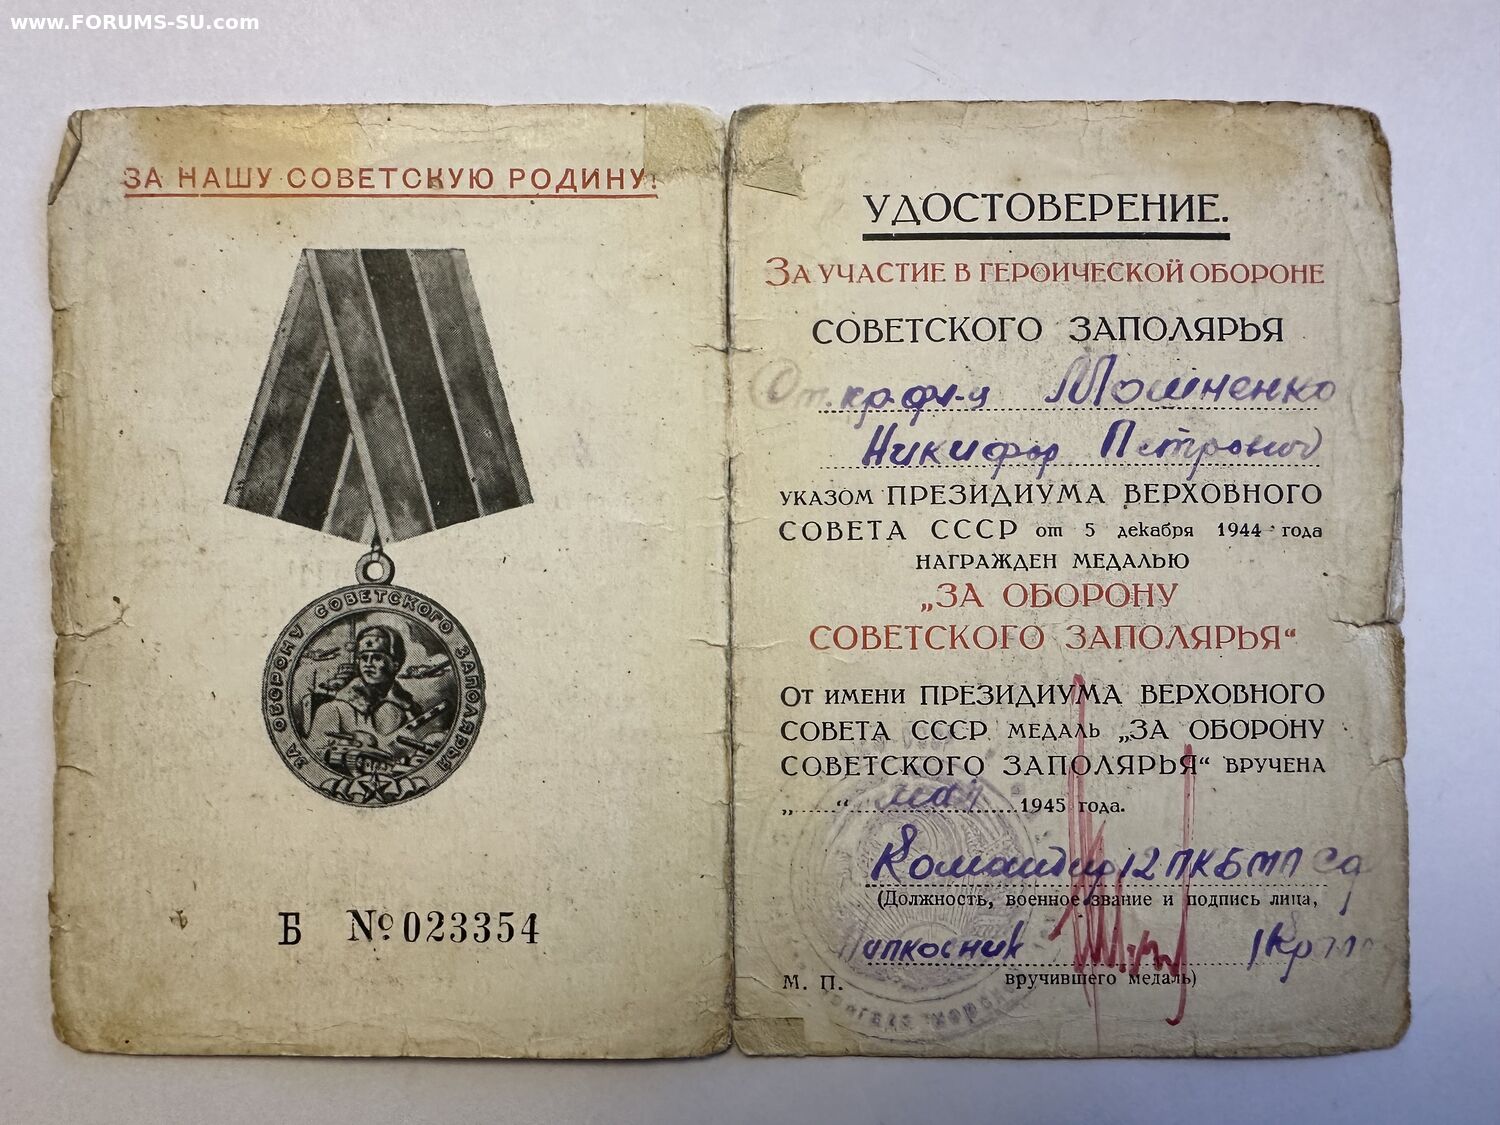 www.FORUMS-SU.com
ЗА НАШУ СОВЕТСКУЮ РОДИНУ!
ЗА ОБОРОНУ СОВЕТСКОГО ЗАПОЛЯРЬЯ
Б № 023354
УДОСТОВЕРЕНИЕ.
ЗА УЧАСТИЕ В ГЕРОИЧЕСКОЙ ОБОРОНЕ
СОВЕТСКОГО ЗАПОЛЯРЬЯ
Ст. кр-фл-ц Мошненко
Никифор Петрович
УКАЗОМ ПРЕЗИДИУМА ВЕРХОВНОГО
СОВЕТА СССР от 5 декабря 1944 года
НАГРАЖДЕН МЕДАЛЬЮ
„ЗА ОБОРОНУ
СОВЕТСКОГО ЗАПОЛЯРЬЯ“
ОТ ИМЕНИ ПРЕЗИДИУМА ВЕРХОВНОГО
СОВЕТА СССР МЕДАЛЬ „ЗА ОБОРОНУ
СОВЕТСКОГО ЗАПОЛЯРЬЯ“ ВРУЧЕНА
„ “ мая 1945 года.
Командир 12 ПКБМП СФ
(Должность, военное звание и подпись лица,
вручившего медаль)
М. П.